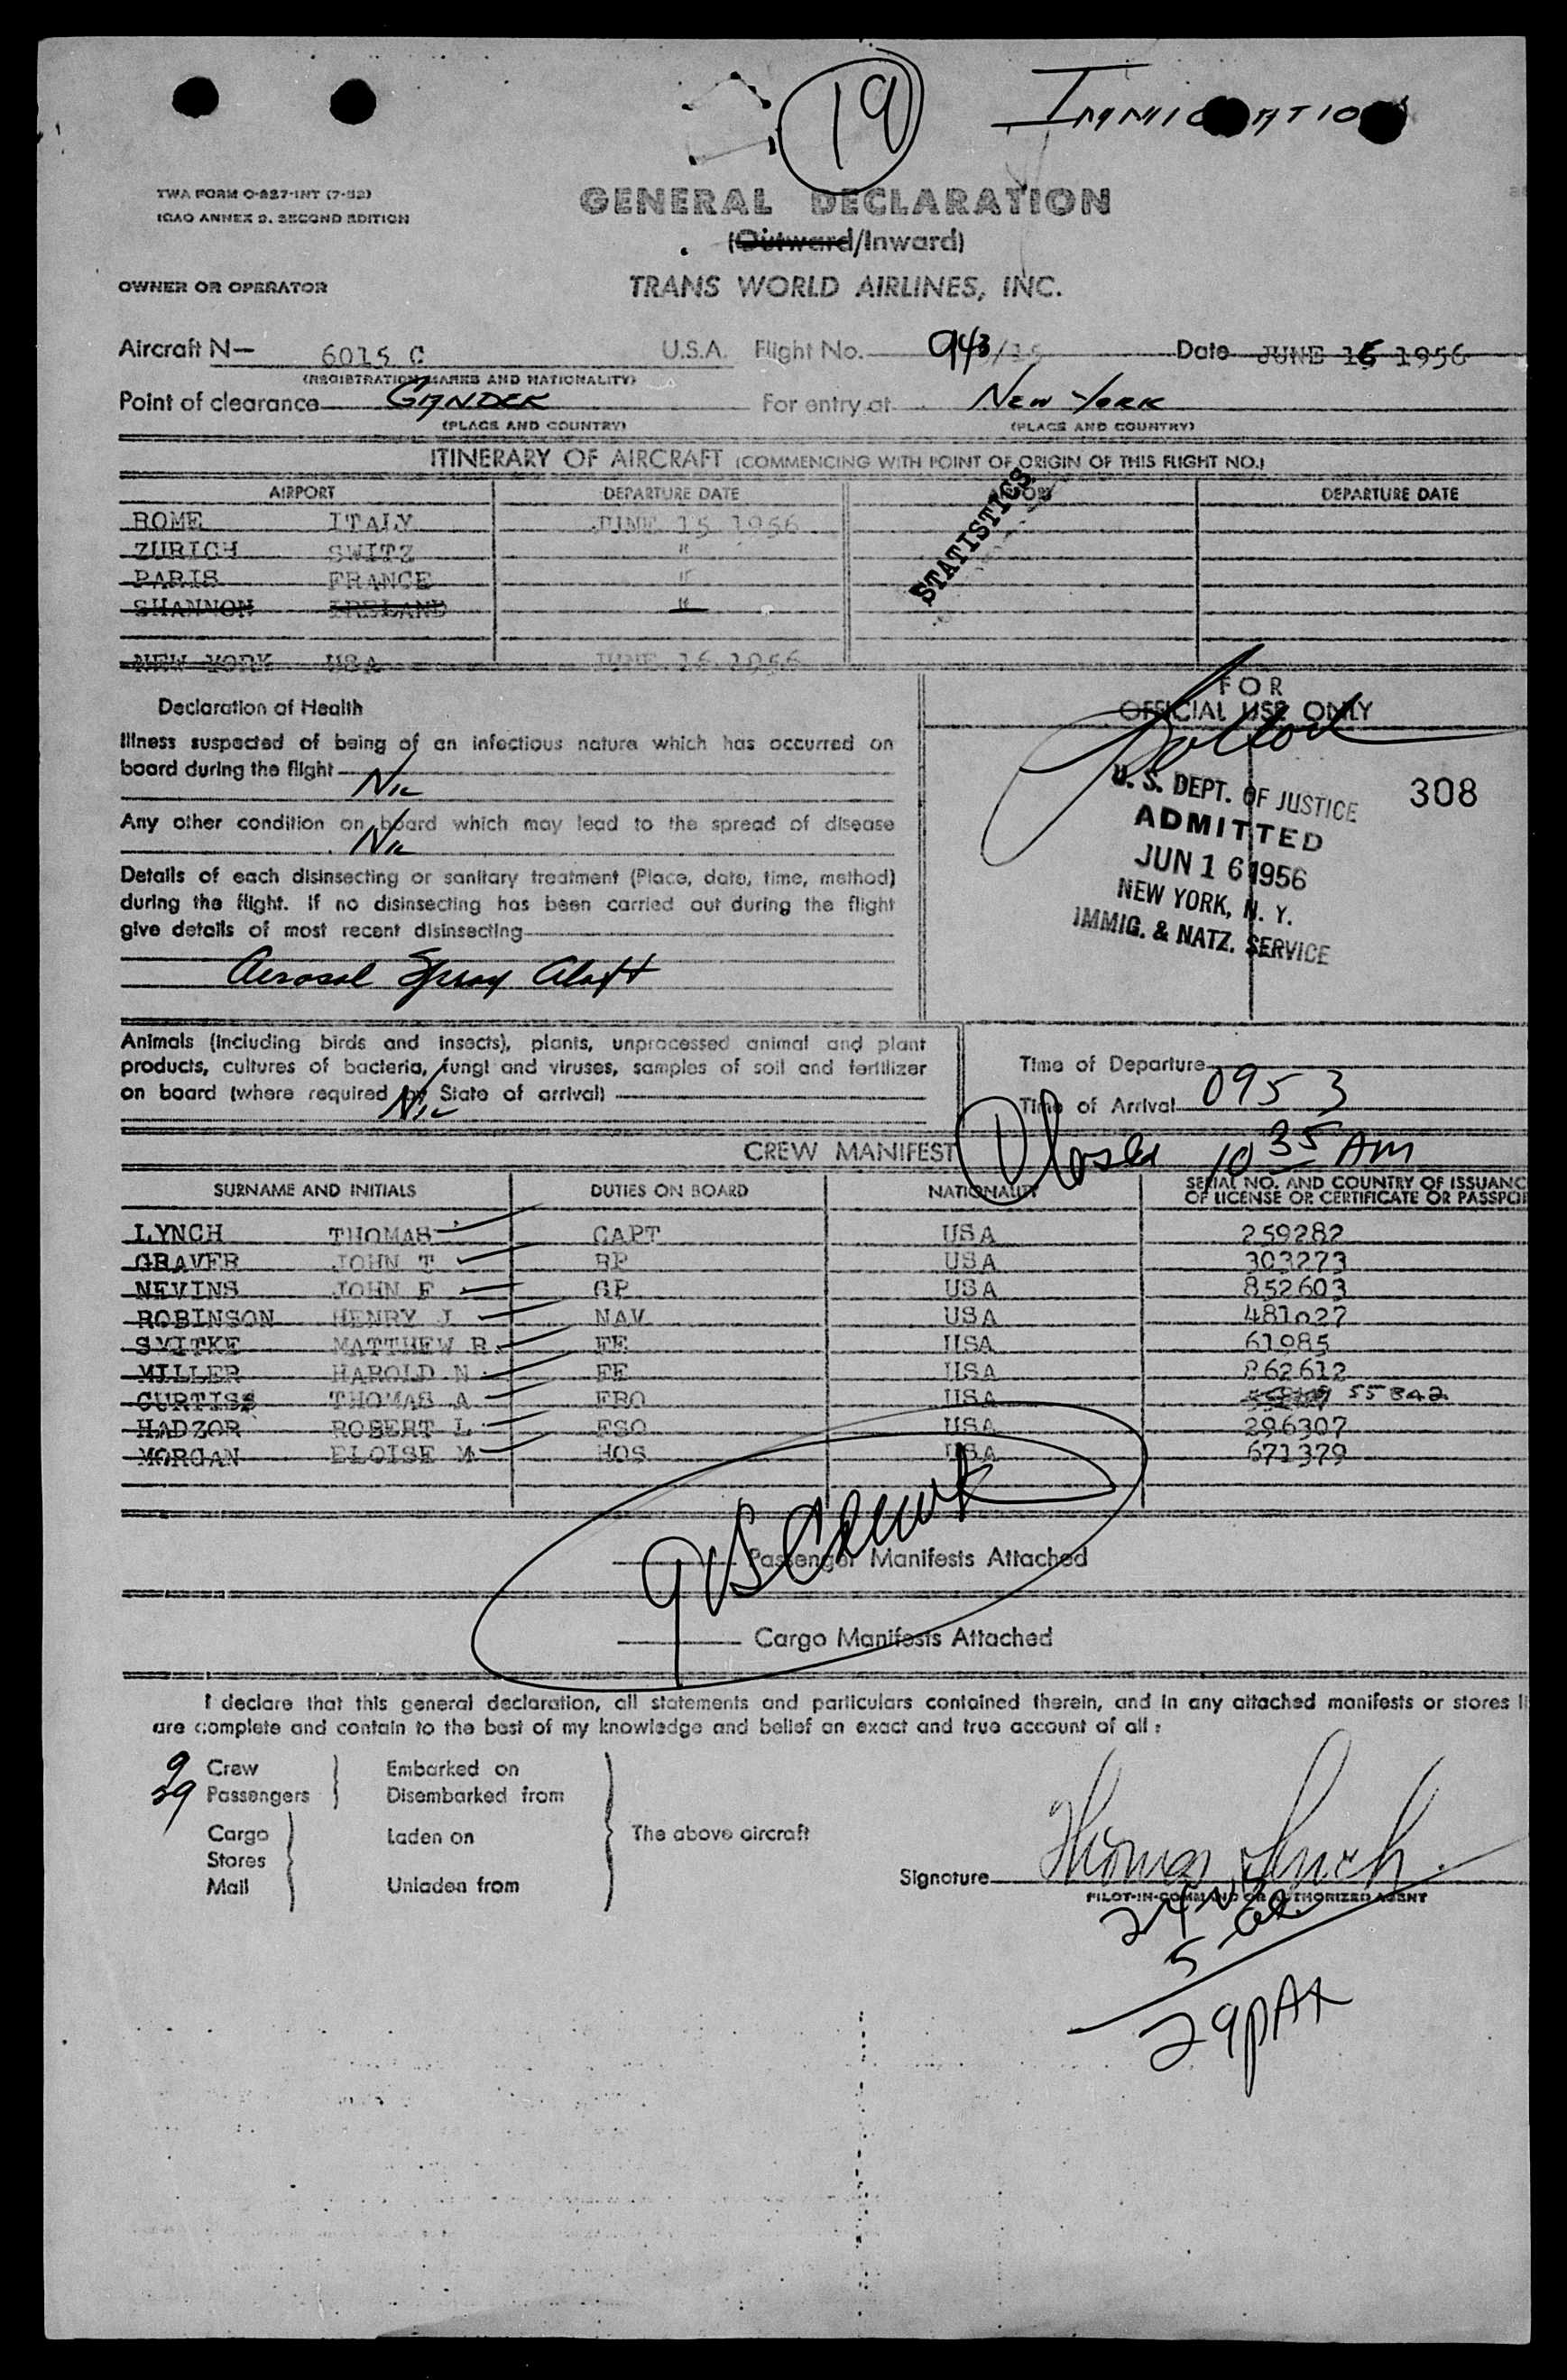 19
IMMIGRATION
TWA FORM O-827-INT (7-52)
ICAO ANNEX 9. SECOND EDITION
GENERAL DECLARATION
(Outward/Inward)
OWNER OR OPERATOR
TRANS WORLD AIRLINES, INC.
Aircraft N— 6015 C U.S.A. Flight No. 943/15 Date JUNE 16 1956
(REGISTRATION MARKS AND NATIONALITY)
Point of clearance GANDER For entry at NEW YORK
(PLACE AND COUNTRY) (PLACE AND COUNTRY)
ITINERARY OF AIRCRAFT (COMMENCING WITH POINT OF ORIGIN OF THIS FLIGHT NO.)
AIRPORT DEPARTURE DATE DEPARTURE DATE
STATISTICS
ROME ITALY JUNE 15 1956
ZURICH SWITZ "
PARIS FRANCE "
SHANNON IRELAND "
NEW YORK USA JUNE 16 1956
FOR
OFFICIAL USE ONLY
Declaration of Health
Illness suspected of being of an infectious nature which has occurred on
board during the flight
Nil
Any other condition on board which may lead to the spread of disease
Nil
Details of each disinsecting or sanitary treatment (Place, date, time, method)
during the flight. If no disinsecting has been carried out during the flight
give details of most recent disinsecting
Aerosol Spray Aloft
U. S. DEPT. OF JUSTICE 308
ADMITTED
JUN 16 1956
NEW YORK, N. Y.
IMMIG. & NATZ. SERVICE
Animals (including birds and insects), plants, unprocessed animal and plant
products, cultures of bacteria, fungi and viruses, samples of soil and fertilizer
on board (where required by State of arrival) Nil
Time of Departure
Time of Arrival 0953
CREW MANIFEST
10 35 AM
SURNAME AND INITIALS DUTIES ON BOARD NATIONALITY SERIAL NO. AND COUNTRY OF ISSUANC
OF LICENSE OR CERTIFICATE OR PASSPO
LYNCH THOMAS CAPT USA 259282
GRAVER JOHN T RP USA 303273
NEVINS JOHN F GP USA 852603
ROBINSON HENRY J NAV USA 481027
SMITKE MATTHEW R FE USA 61985
MILLER HAROLD N FE USA 862612
CURTISS THOMAS A FRO USA 55842
HADZOR ROBERT L FSO USA 296307
MORGAN ELOISE M HOS USA 671379
Passenger Manifests Attached
Cargo Manifests Attached
I declare that this general declaration, all statements and particulars contained therein, and in any attached manifests or stores li
are complete and contain to the best of my knowledge and belief an exact and true account of all :
9 Crew Embarked on
29 Passengers Disembarked from
Cargo Laden on The above aircraft
Stores
Mail Unladen from
Signature Thomas Lynch
PILOT-IN-COMMAND OR AUTHORIZED AGENT
24
5
29 PAX